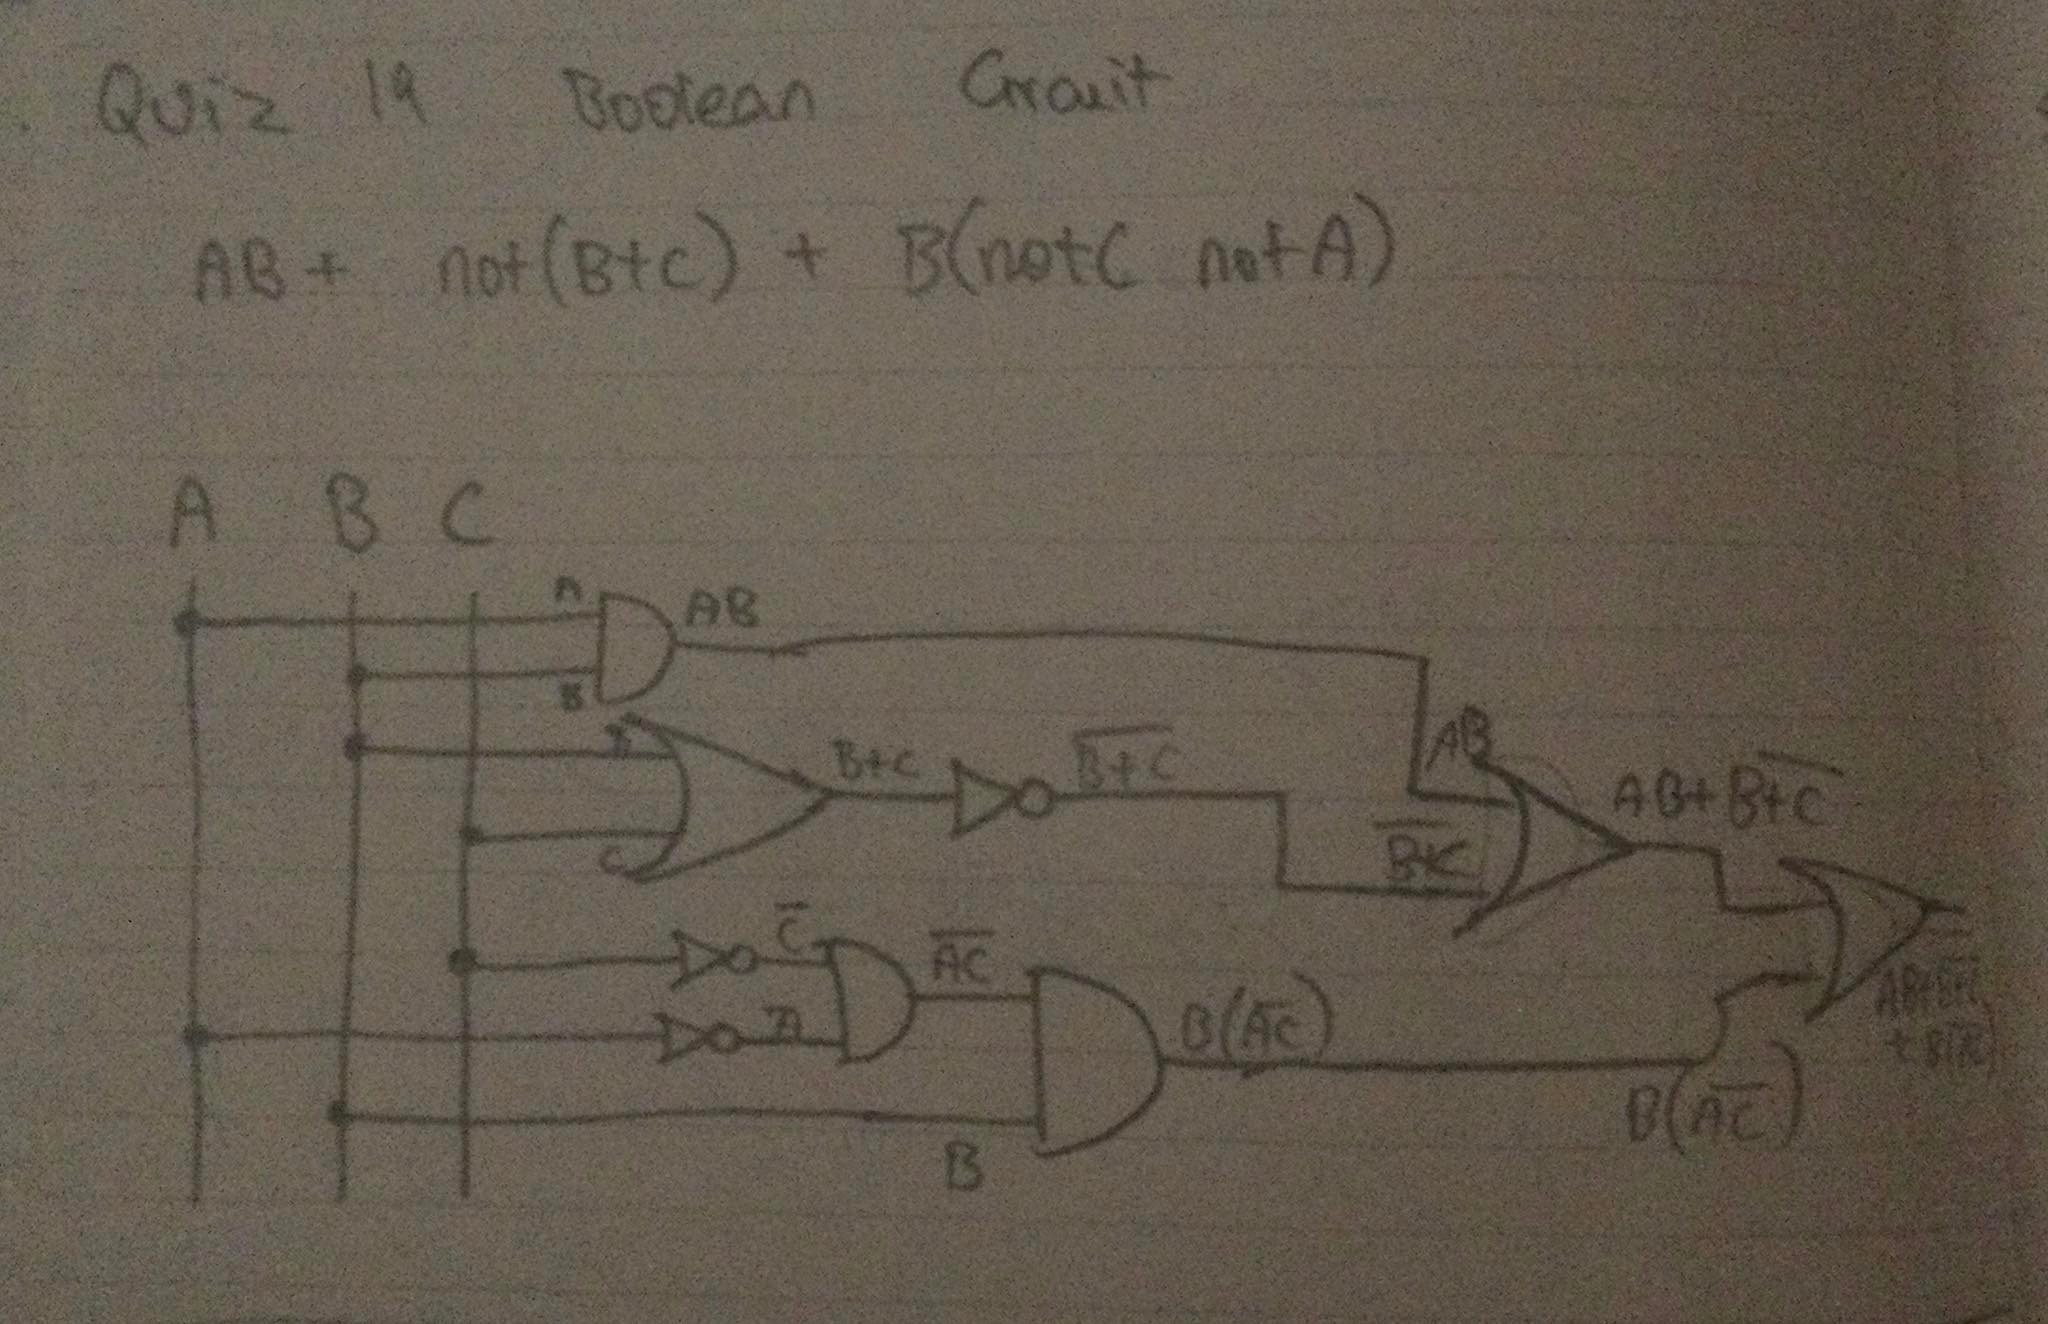 Quiz 19 Boolean Circuit
AB + not(B+C) + B(notC notA)
A B C
A
AB
B
B
B+C
B̅+̅C̅
AB
B̅+̅C̅
AB+B̅+̅C̅
C
C̅
A̅
A̅C̅
B(A̅C̅)
B
B(A̅C̅)
AB+B̅+̅C̅
+ B(A̅C̅)